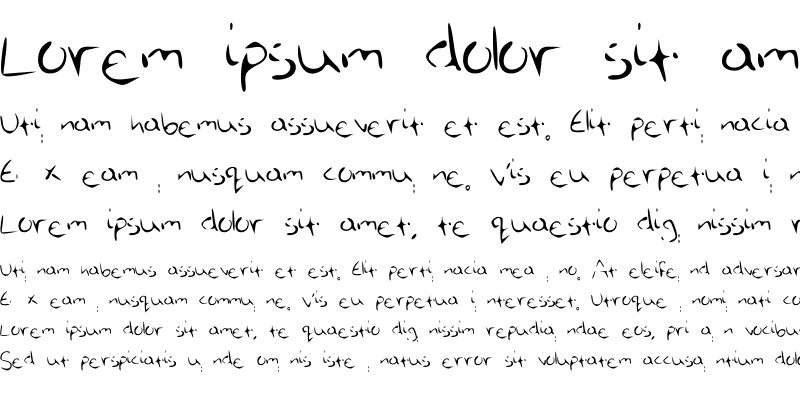 Lorem ipsum dolor sit am
Uti nam habemus assueverit et est. Elit perti nacia
E x eam , nusquam commu ne. Vis eu perpetua i n
Lorem ipsum dolor sit amet, te quaestio dig nissim r
Uti nam habemus assueverit et est. Elit perti nacia mea , no. At eleife nd adversar
E x eam , nusquam commu ne. Vis eu perpetua i nteresset. Utroque , nomi nati co
Lorem ipsum dolor sit amet, te quaestio dig nissim repudia ndae eos, pri a n vocibu
Sed ut perspiciatis u nde om nis iste , natus error sit voluptatem accusa ntium dolo